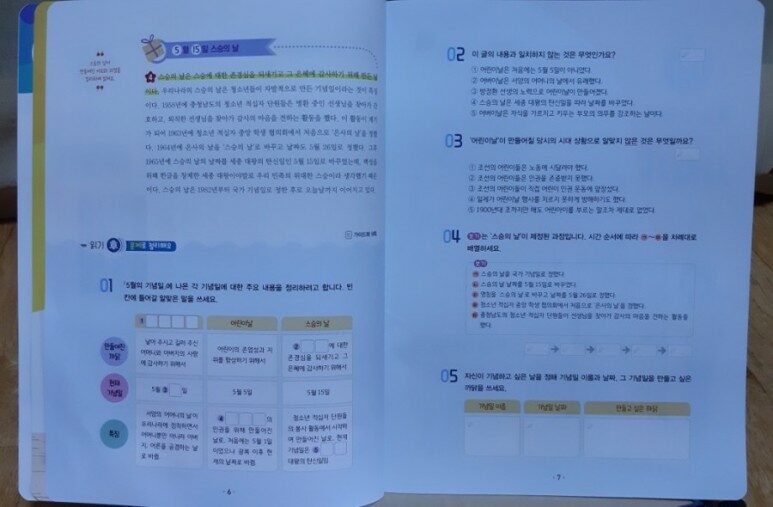 스승의 날이
5월 15일 스승의 날
스승의 날은 스승에 대한 존경심을 되새기고 그 은혜에 감사하기 위해 만든 날
이다. 우리나라의 스승의 날은 청소년들이 자발적으로 만든 기념일이라는 것이 특징
이다. 1955년에 충청남도의 청소년 적십자 단원들은 병환 중인 선생님을 찾아가 간
호하고, 퇴직한 선생님을 찾아가 감사의 마음을 전하는 활동을 했다. 이 활동이 계기
가 되어 1963년에 청소년 적십자 중앙 학생 협의회에서 처음으로 '은사의 날'을 정했
다. 1964년에 은사의 날을 '스승의 날'로 바꾸고 날짜도 5월 26일로 정했다. 그후
1965년에 스승의 날의 날짜를 세종 대왕의 탄신일인 5월 15일로 바꾸었는데, 백성을
위해 한글을 창제한 세종 대왕이야말로 우리 민족의 위대한 스승이라 생각했기 때문
이다. 스승의 날은 1982년부터 국가 기념일로 정한 후로 오늘날까지 이어지고 있다.
읽기 후 문제로 정리해요
01 '5월의 기념일'에 나온 각 기념일에 대한 주요 내용을 정리하려고 합니다. 빈
칸에 들어갈 알맞은 말을 쓰세요.
① 어린이날 스승의 날
만들어진 까닭
낳아 주시고 길러 주신 어머니와 아버지의 사랑에 감사하기 위해서
어린이의 존엄성과 지위를 향상하기 위해서
② 에 대한 존경심을 되새기고 그 은혜에 감사하기 위해서
현재 기념일
5월 ③ 일 5월 5일 5월 15일
특징
서양의 어머니의 날이 우리나라에 정착하면서 어머니뿐만 아니라 아버지, 어른을 공경하는 날로 바뀜.
④ 의 인권을 위해 만들어진 날로, 처음에는 5월 1일이었으나 광복 이후 현재의 날짜로 바뀜.
청소년 적십자 단원들의 봉사 활동에서 시작하여 만들어진 날로, 현재 기념일은 ⑤ 대왕의 탄신일임.
- 6 -
02 이 글의 내용과 일치하지 않는 것은 무엇인가요?
① 어린이날은 처음에는 5월 5일이 아니었다.
② 어버이날은 서양의 어머니의 날에서 유래했다.
③ 방정환 선생의 노력으로 어린이날이 만들어졌다.
④ 스승의 날은 세종 대왕의 탄신일을 따라 날짜를 바꾸었다.
⑤ 어버이날은 자식을 가르치고 키우는 부모의 의무를 강조하는 날이다.
03 '어린이날'이 만들어질 당시의 시대 상황으로 알맞지 않은 것은 무엇일까요?
① 조선의 어린이들은 노동에 시달려야 했다.
② 조선의 어린이들은 인권을 존중받지 못했다.
③ 조선의 어린이들이 직접 어린이 인권 운동에 앞장섰다.
④ 일제가 어린이날 행사를 치르지 못하게 방해하기도 했다.
⑤ 1900년대 초까지만 해도 어린아이를 부르는 말조차 제대로 없었다.
04 보기는 '스승의 날'이 제정된 과정입니다. 시간 순서에 따라 ㉮~㉲를 차례대로
배열하세요.
보기
㉮ 스승의 날을 국가 기념일로 정했다.
㉯ 스승의 날 날짜를 5월 15일로 바꾸었다.
㉰ 명칭을 '스승의 날'로 바꾸고 날짜를 5월 26일로 정했다.
㉱ 청소년 적십자 중앙 학생 협의회에서 처음으로 '은사의 날'을 정했다.
㉲ 충청남도의 청소년 적십자 단원들이 선생님을 찾아가 감사의 마음을 전하는 활동을
했다.
05 자신이 기념하고 싶은 날을 정해 기념일 이름과 날짜, 그 기념일을 만들고 싶은
까닭을 쓰세요.
기념일 이름 기념일 날짜 만들고 싶은 까닭
- 7 -